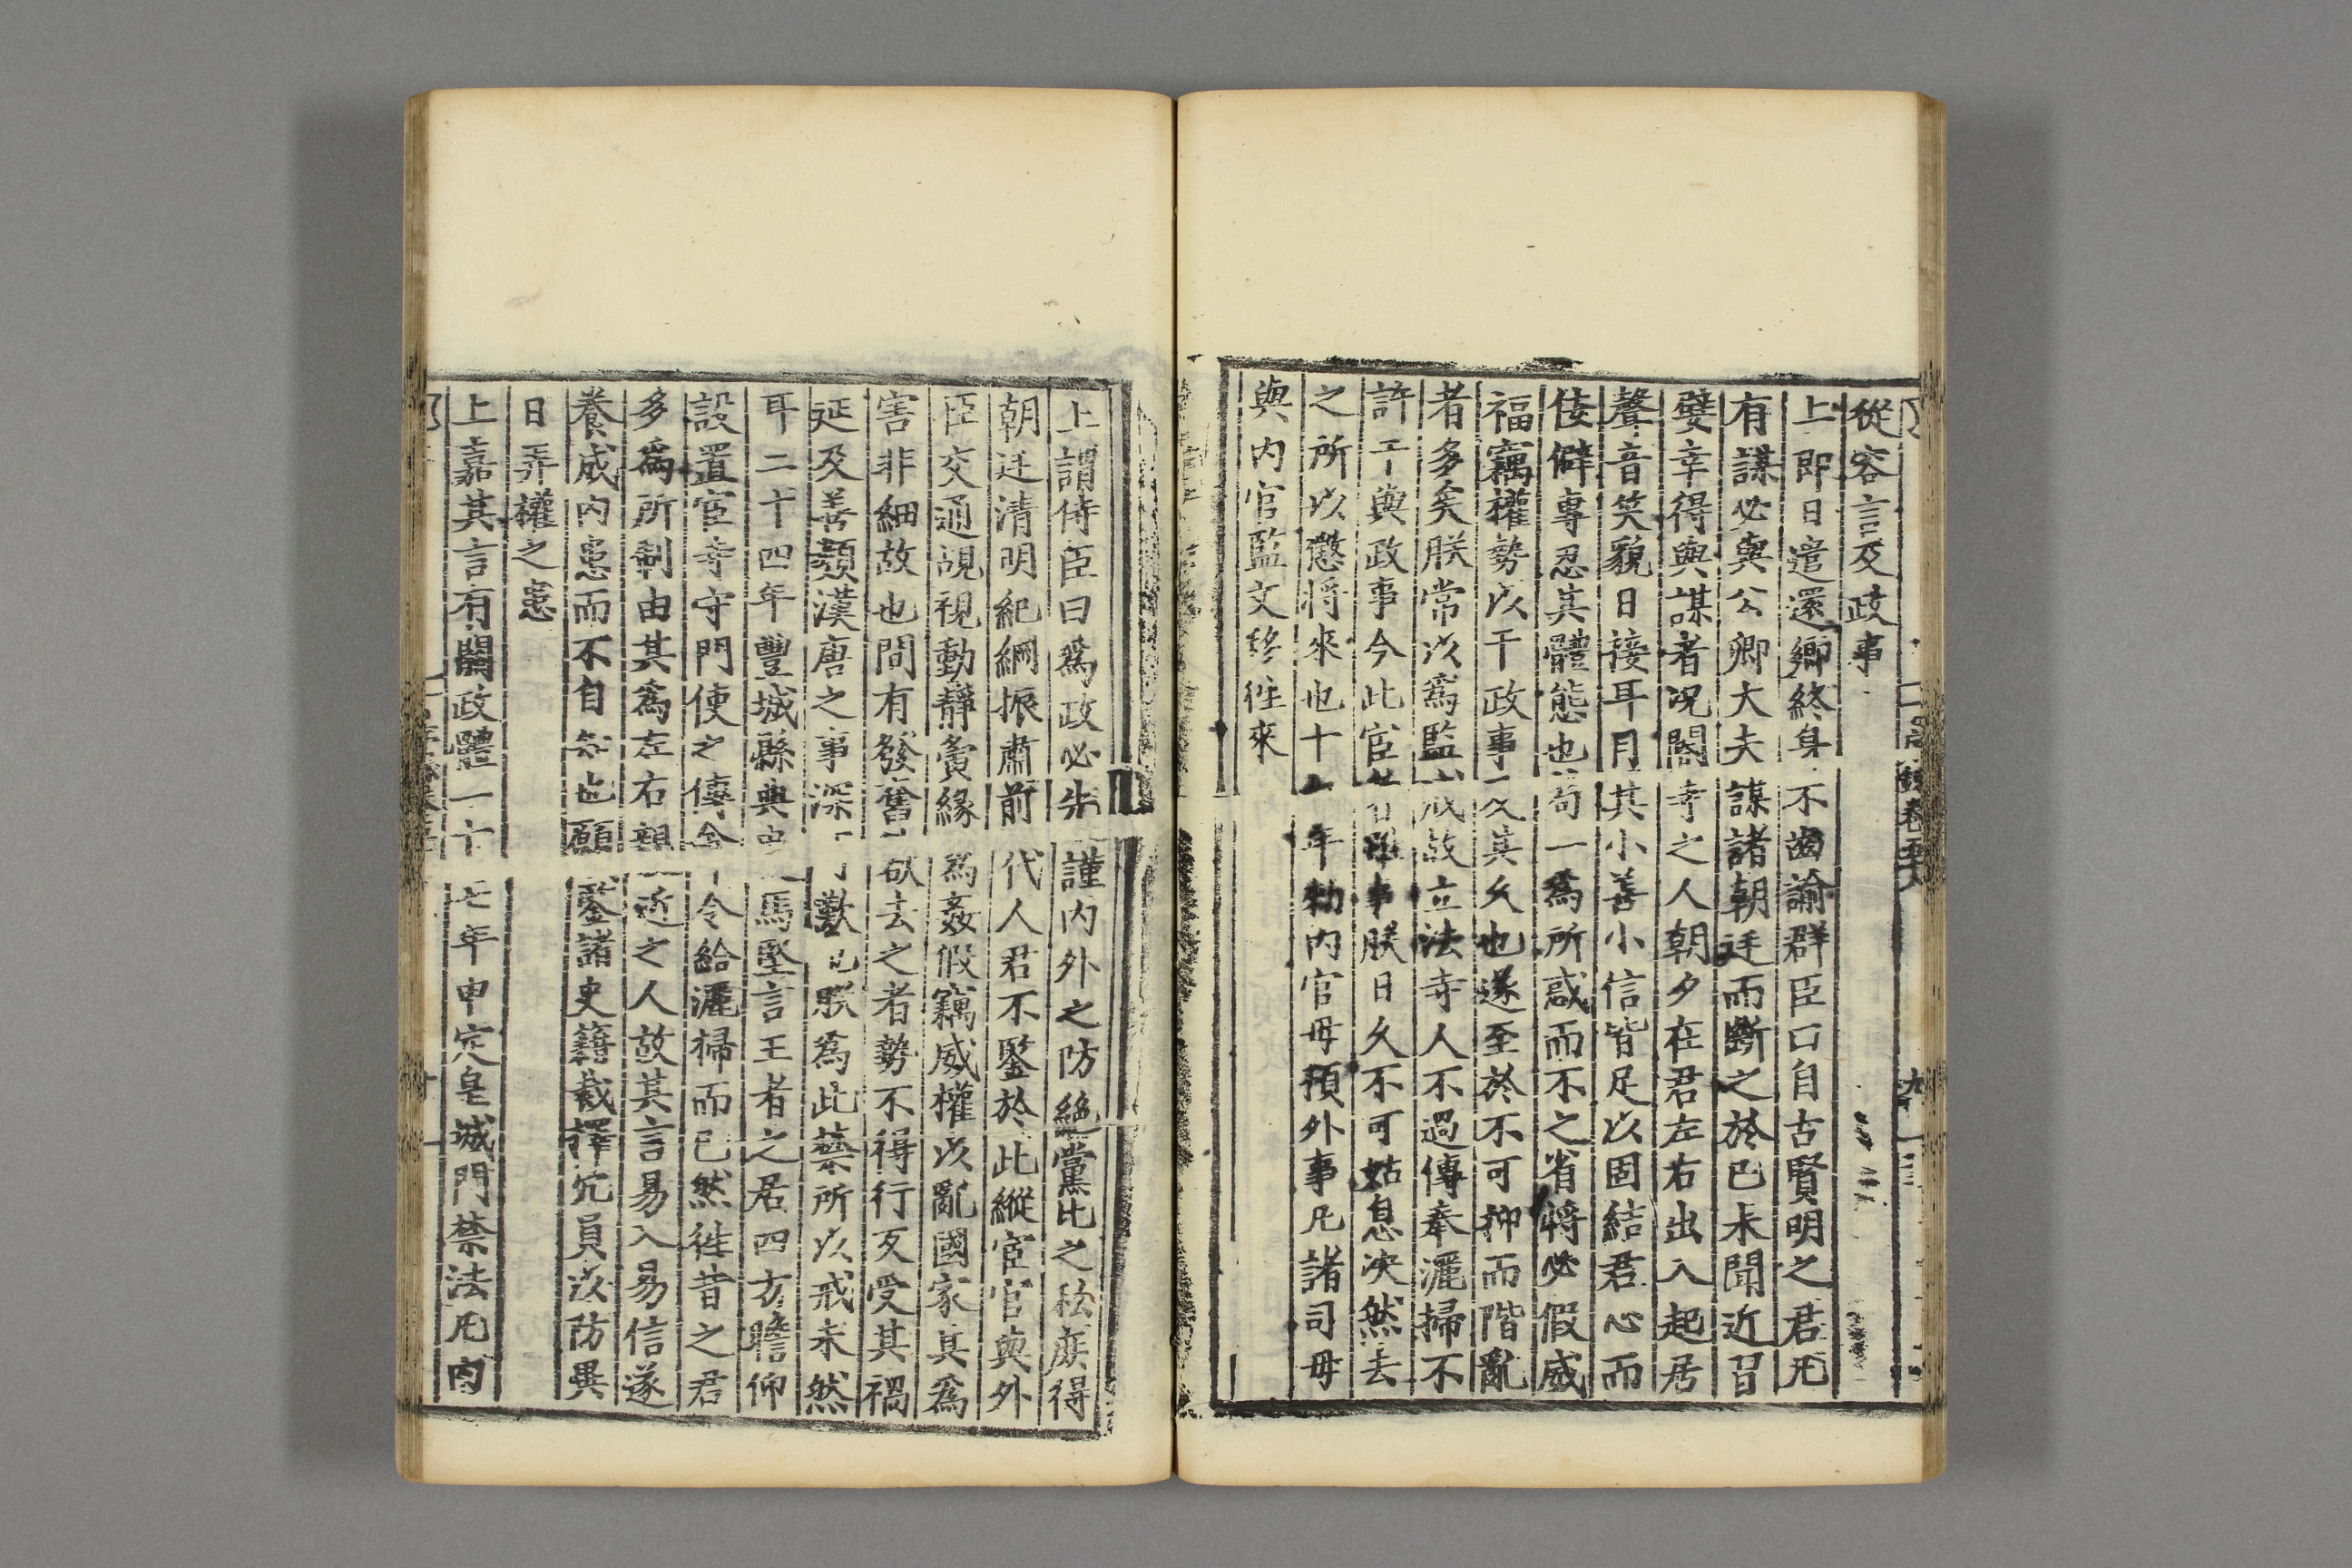 從容言及政事
上即日遣還鄉終身不齒諭群臣曰自古賢明之君凡
有謀必與公卿大夫謀諸朝廷而斷之於已未聞近習
嬖幸得與謀者况閹寺之人朝夕在君左右出入起居
聲音笑貌日接耳目其小善小信皆足以固結君心而
佞僻專忍其體態也苟一爲所惑而不之省將必假威
福竊權勢以干政事久其久也遂至於不可抑而階亂
者多矣朕常以爲監戒故立法寺人不過傳奉灑掃不
許干與政事今此宦者雖事朕日久不可姑息决然去
之所以懲將來也十年勑内官毋預外事凡諸司毋
與内官監文移往來
上謂侍臣曰爲政必先謹内外之防絶黨比之私庶得
朝廷清明紀綱振肅前代人君不鑒於此縱宦官與外
臣交通覘視動靜夤緣爲姦假竊威權以亂國家其爲
害非細故也間有發奮欲去之者勢不得行反受其禍
延及善類漢唐之事深可歎也朕爲此禁所以戒未然
耳二十四年豐城縣典史馬堅言王者之居四方瞻仰
設置宦寺守門使之傳命令給灑掃而已然徃昔之君
多爲所制由其爲左右親近之人故其言易入易信遂
養成内患而不自知也願鑒諸史籍裁擇冗員以防異
日弄權之患
上嘉其言有關政體二十七年申定皇城門禁法凡内